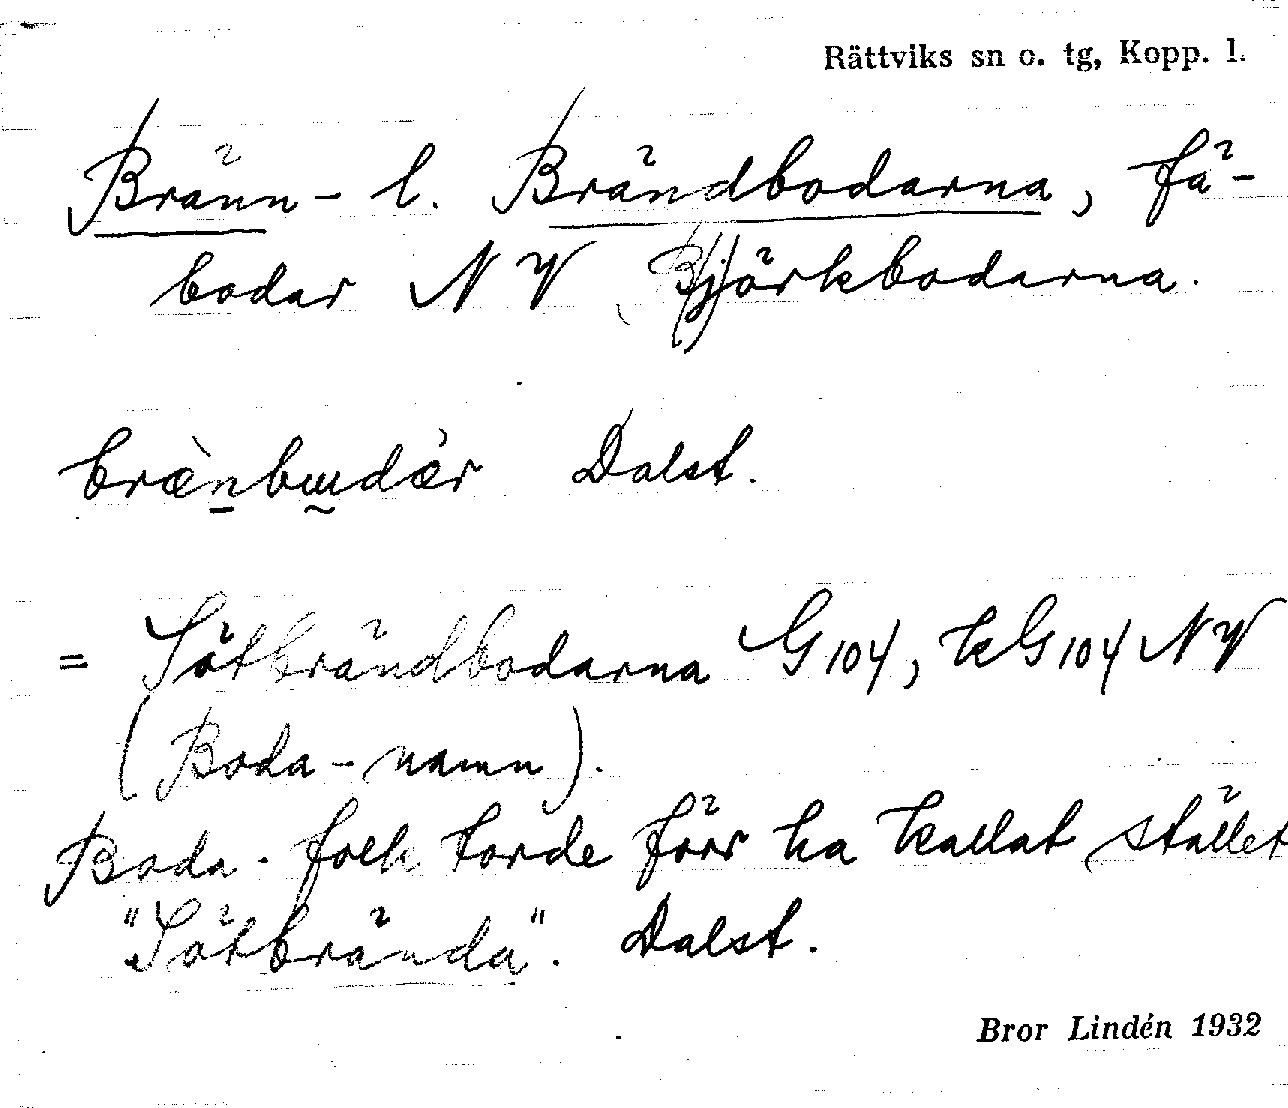 Rättviks sn o. tg, Kopp. l.
Bränn- l. Brändbodarna, fä-
bodar NV Björkbodarna.
bræ̀n̲bɯ̰dær Dalst.
= Sötbrändbodarna G104, kG104 NV
(Boda-namn).
Boda-folk torde förr ha kallat stället
"Sötbrända". Dalst.
Bror Lindén 1932